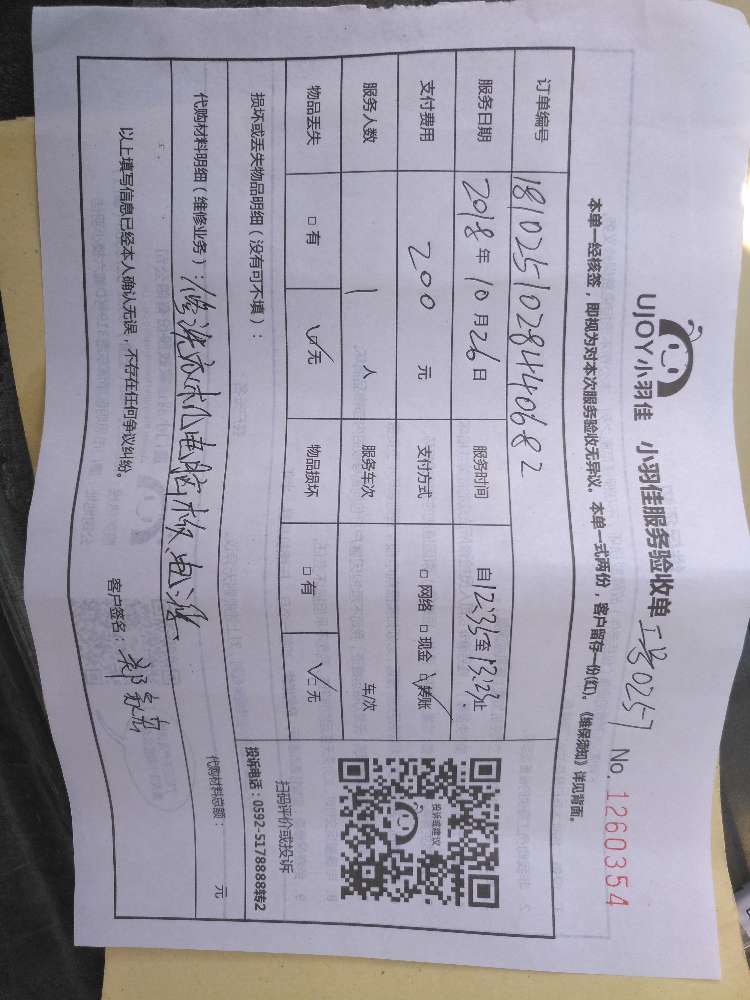 UJOY小羽佳 小羽佳服务验收单 工号0257 No.1260354
本单一经核签，即视为对本次服务验收无异议。本单一式两份，客户留存一份(红)。《维保须知》详见背面。
订单编号 18102510284440682
服务日期 2018年10月26日 服务时间 自12:35至13:23止
支付费用 200元 支付方式 □网络 □现金 ☑转账
服务人数 1人 服务车次 车/次
物品丢失 □有 ☑无 物品损坏 □有 ☑无
投诉或建议
扫码评价或投诉
投诉电话：0592-5178888转2
损坏或丢失物品明细（没有可不填）：
代购材料明细（维修业务）：修洗衣机电脑板、电源 代购材料总额： 元
以上填写信息已经本人确认无误，不存在任何争议纠纷。 客户签名：